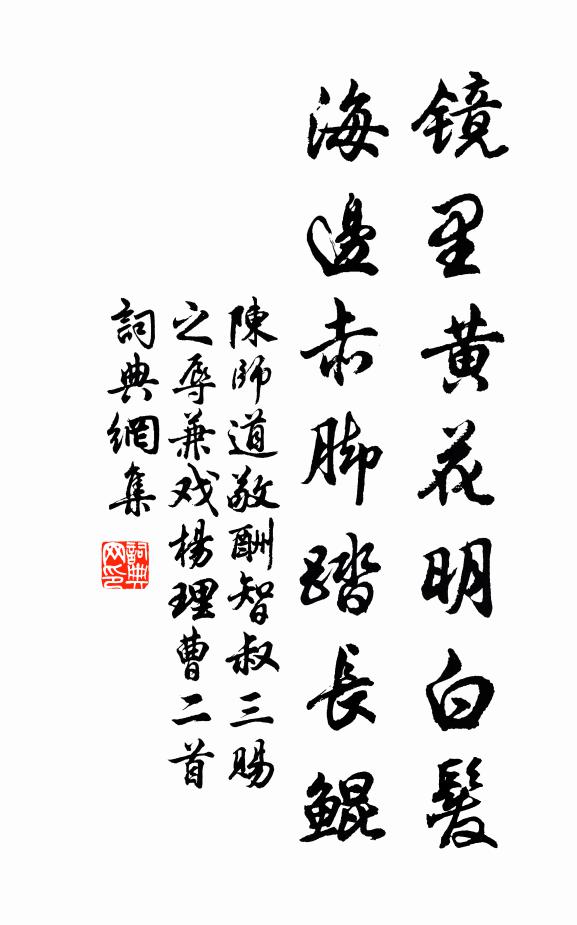 镜里黄花明白髮
海邊赤脚踏長鯤
陳師道敬酬智叔三賜
之辱兼戏楊理曹二首
詞典網集
詞典网印